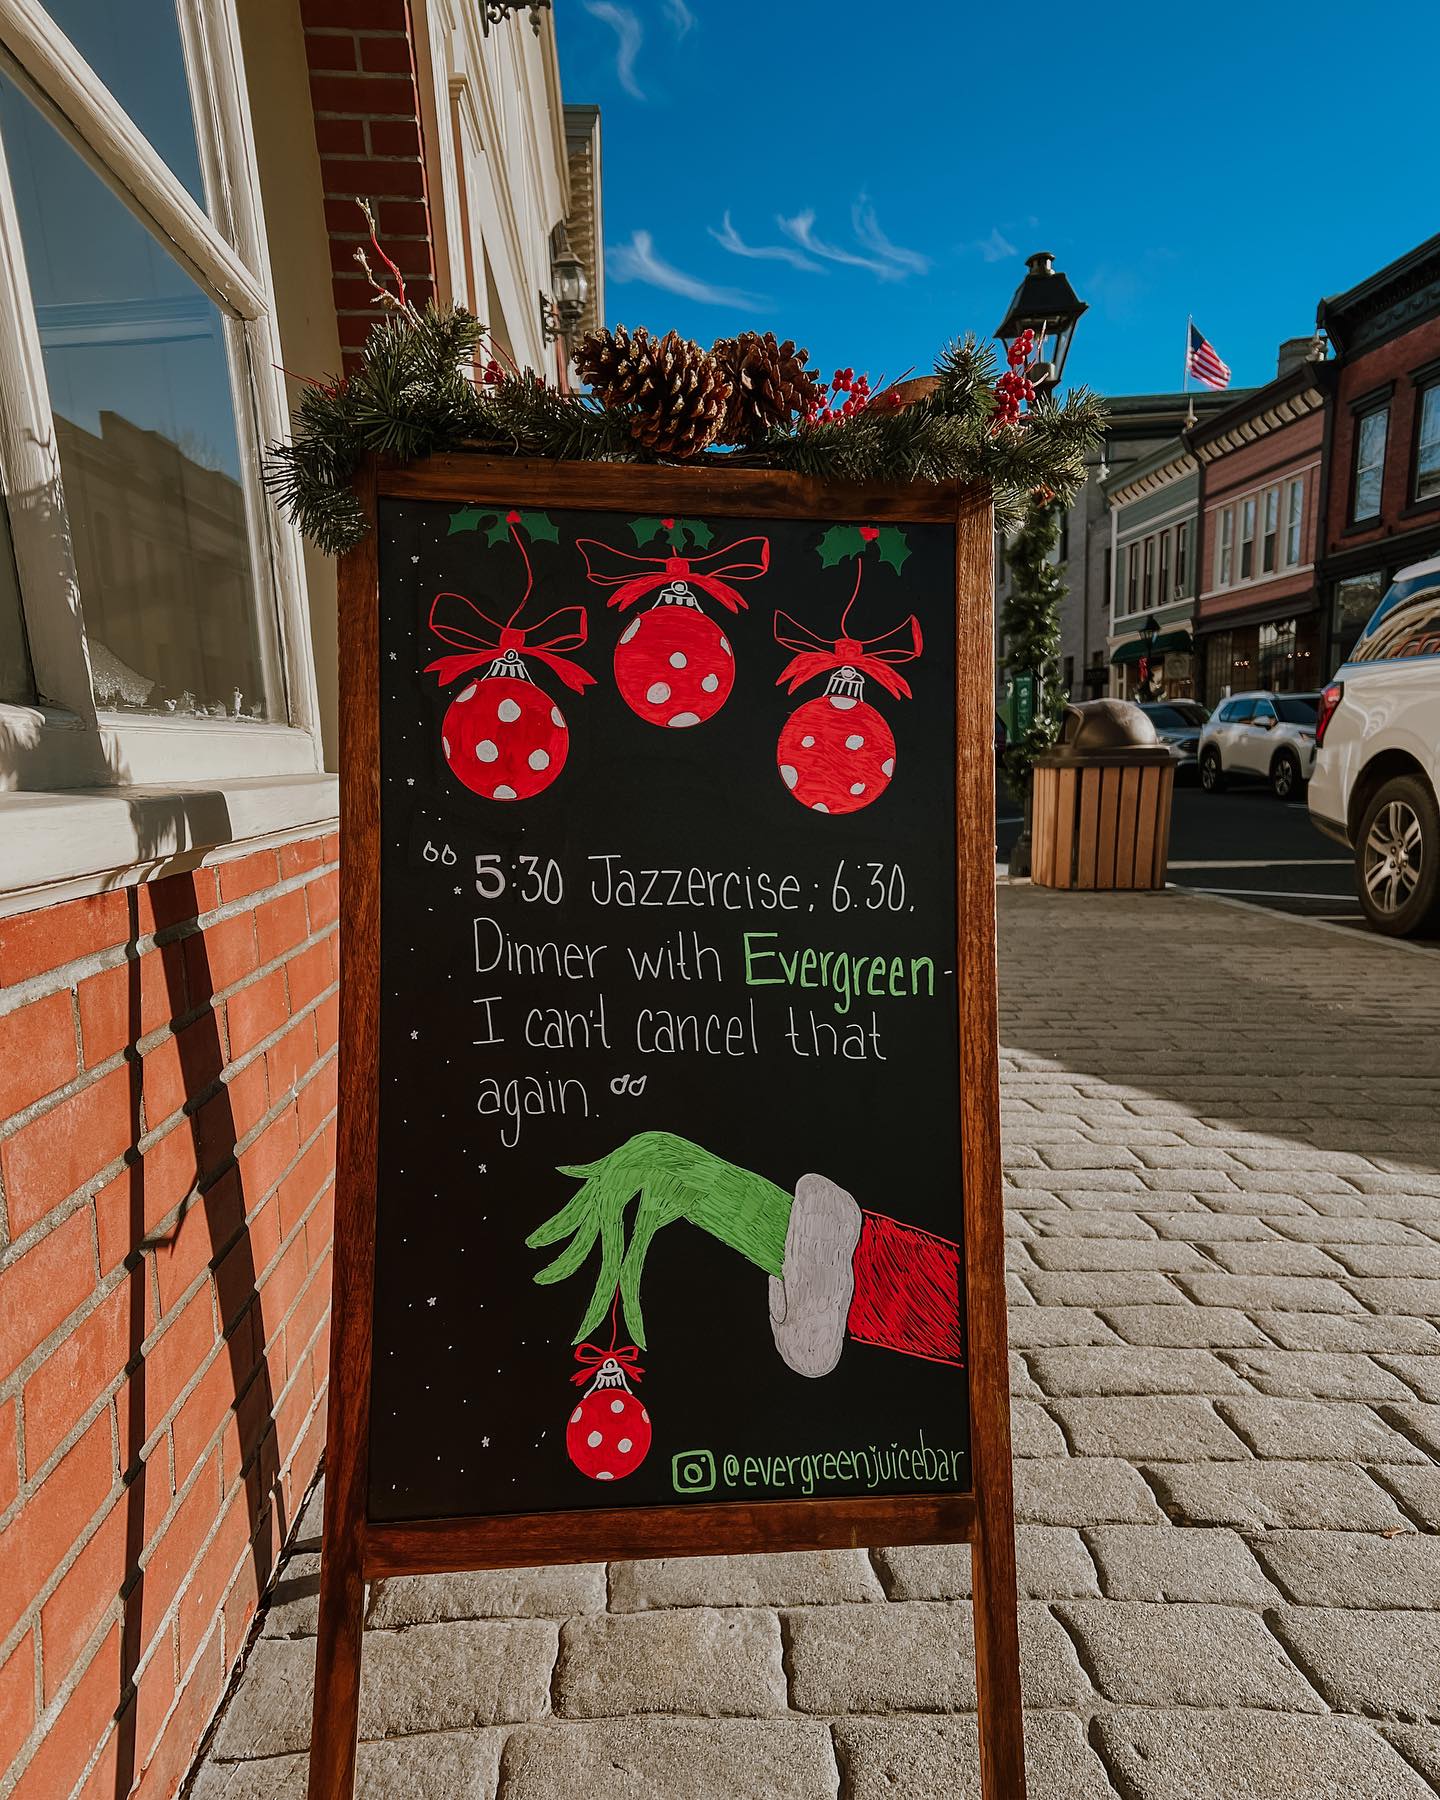 “5:30 Jazzercise; 6:30.
Dinner with Evergreen-
I can't cancel that
again.”
@evergreenjuicebar